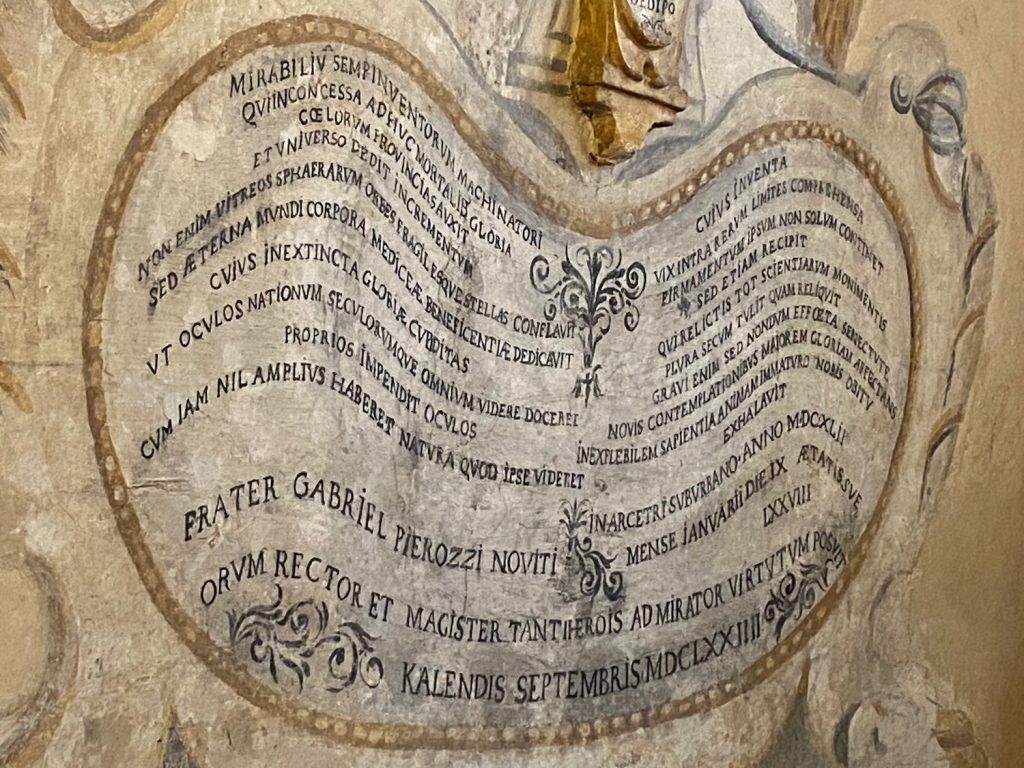 OEDIPO
MIRABILIṼ SEMP INVENTORUM MACHINATORI
QVI INCONCESSA ADHVC MORTALIB GLORIA
CŒLORVM PROVINCIAS AVXIT
ET VNIVERSO DEDIT INCREMENTVM
NON ENIM VITREOS SPHAERARVM ORBES FRAGILESQVE STELLAS CONFLAVIT
SED ÆTERNA MVNDI CORPORA MEDICEÆ BENEFICENTIÆ DEDICAVIT
CVIVS INEXTINCTA GLORIÆ CVPDITAS
VT OCVLOS NATIONVM SECVLORVMQVE OMNIVM VIDERE DOCERET
PROPRIOS IMPENDIT OCVLOS
CVM IAM NIL AMPLIVS HABERET NATVRA QVOD IPSE VIDERET
CVIVS INVENTA
VIX INTRA RERVM LIMITES COMPREHENSA
FIRMAMENTVM IPSVM NON SOLVM CONTINET
SED ETIAM RECIPIT
QVI RELICTIS TOT SCIENTIARVM MONIMENTIS
PLVRA SECVM TVLIT QVAM RELIQVIT
GRAVI ENIM SED NONDVM EFFŒTA SENECTVTE
NOVIS CONTEMPLATIONIBVS MAIOREM GLORIAM AFFECTANS
INEXPLEBILEM SAPIENTIA ANIMAM IMMATVRO NOBIS OBITV
EXHALAVIT
IN ARCETRI SVBVRBANO · ANNO MDCXLII
MENSE IANVARII DIE IX ÆTATIS SVE
LXXVIII
FRATER GABRIEL PIEROZZI NOVITI
ORVM RECTOR ET MAGISTER TANTI HEROIS ADMIRATOR VIRTVTVM POSVIT
KALENDIS SEPTEMBRIS MDCLXXIIII